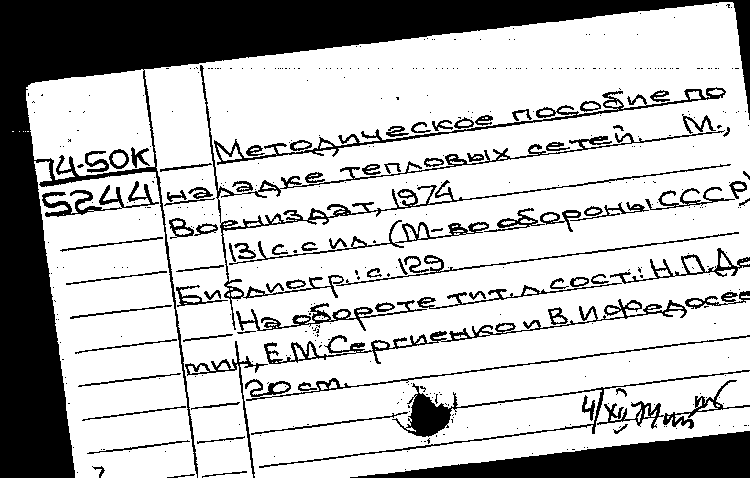 74-50К
5244
Методическое пособие по
наладке тепловых сетей. М.,
Воениздат, 1974.
131 с. с ил. (М-во обороны СССР)
Библиогр.: с. 129.
На обороте тит. л. сост.: Н.П. Де
тин, Е.М. Сергиенко и В.И. Федосее
20 см.
4/XII 74
7